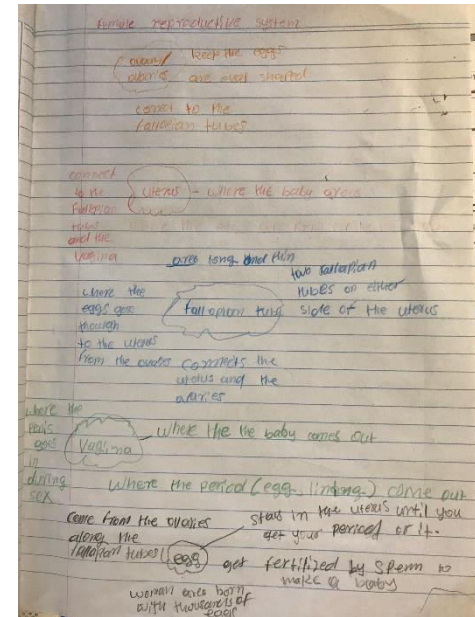 female reproductive system
ovary/ keep the eggs
ovaries are oval shaped
connect to the
fallopian tubes
connect
to the uterus - where the baby grows
Fallopian
tubes
and the
vagina
are long and thin
two fallopian
tubes on either
side of the uterus
where the
eggs goes
though
to the uterus
from the ovaries
fallopian tube
connects the
uterus and the
ovaries
where the
penis
goes
in
during
sex
vagina
where the the baby comes out
where the period (egg, linding) come out
come from the ovaries
along the
fallopian tubes
egg
stays in the uterus until you
get your period or it.
get fertilized by sperm to
make a baby
woman are born
with thousands of
eggs